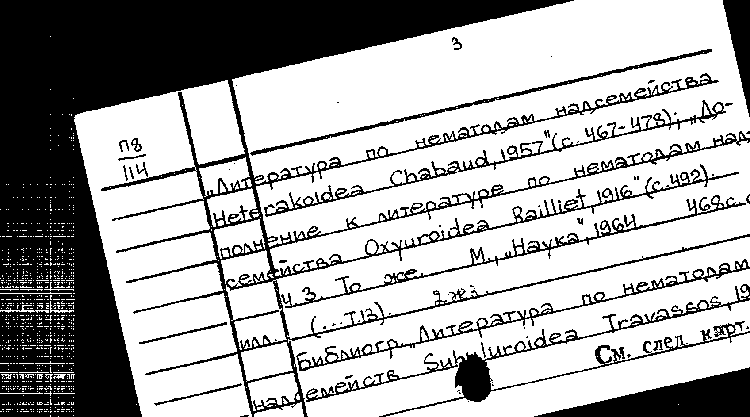 3
П8
114
„Литература по нематодам надсемейства
Heterakoidea Chabaud, 1957" (с. 467-478); „До-
полнение к литературе по нематодам над-
семейства Oxyuroidea Railliet, 1916" (с. 492).
Ч. 3. То же. М., „Наука", 1964. 468 с. с
илл. (...Т.13). 2 экз.
Библиогр. „Литература по нематодам
надсемейств Subuluroidea Travassos, 19
См. след. карт.